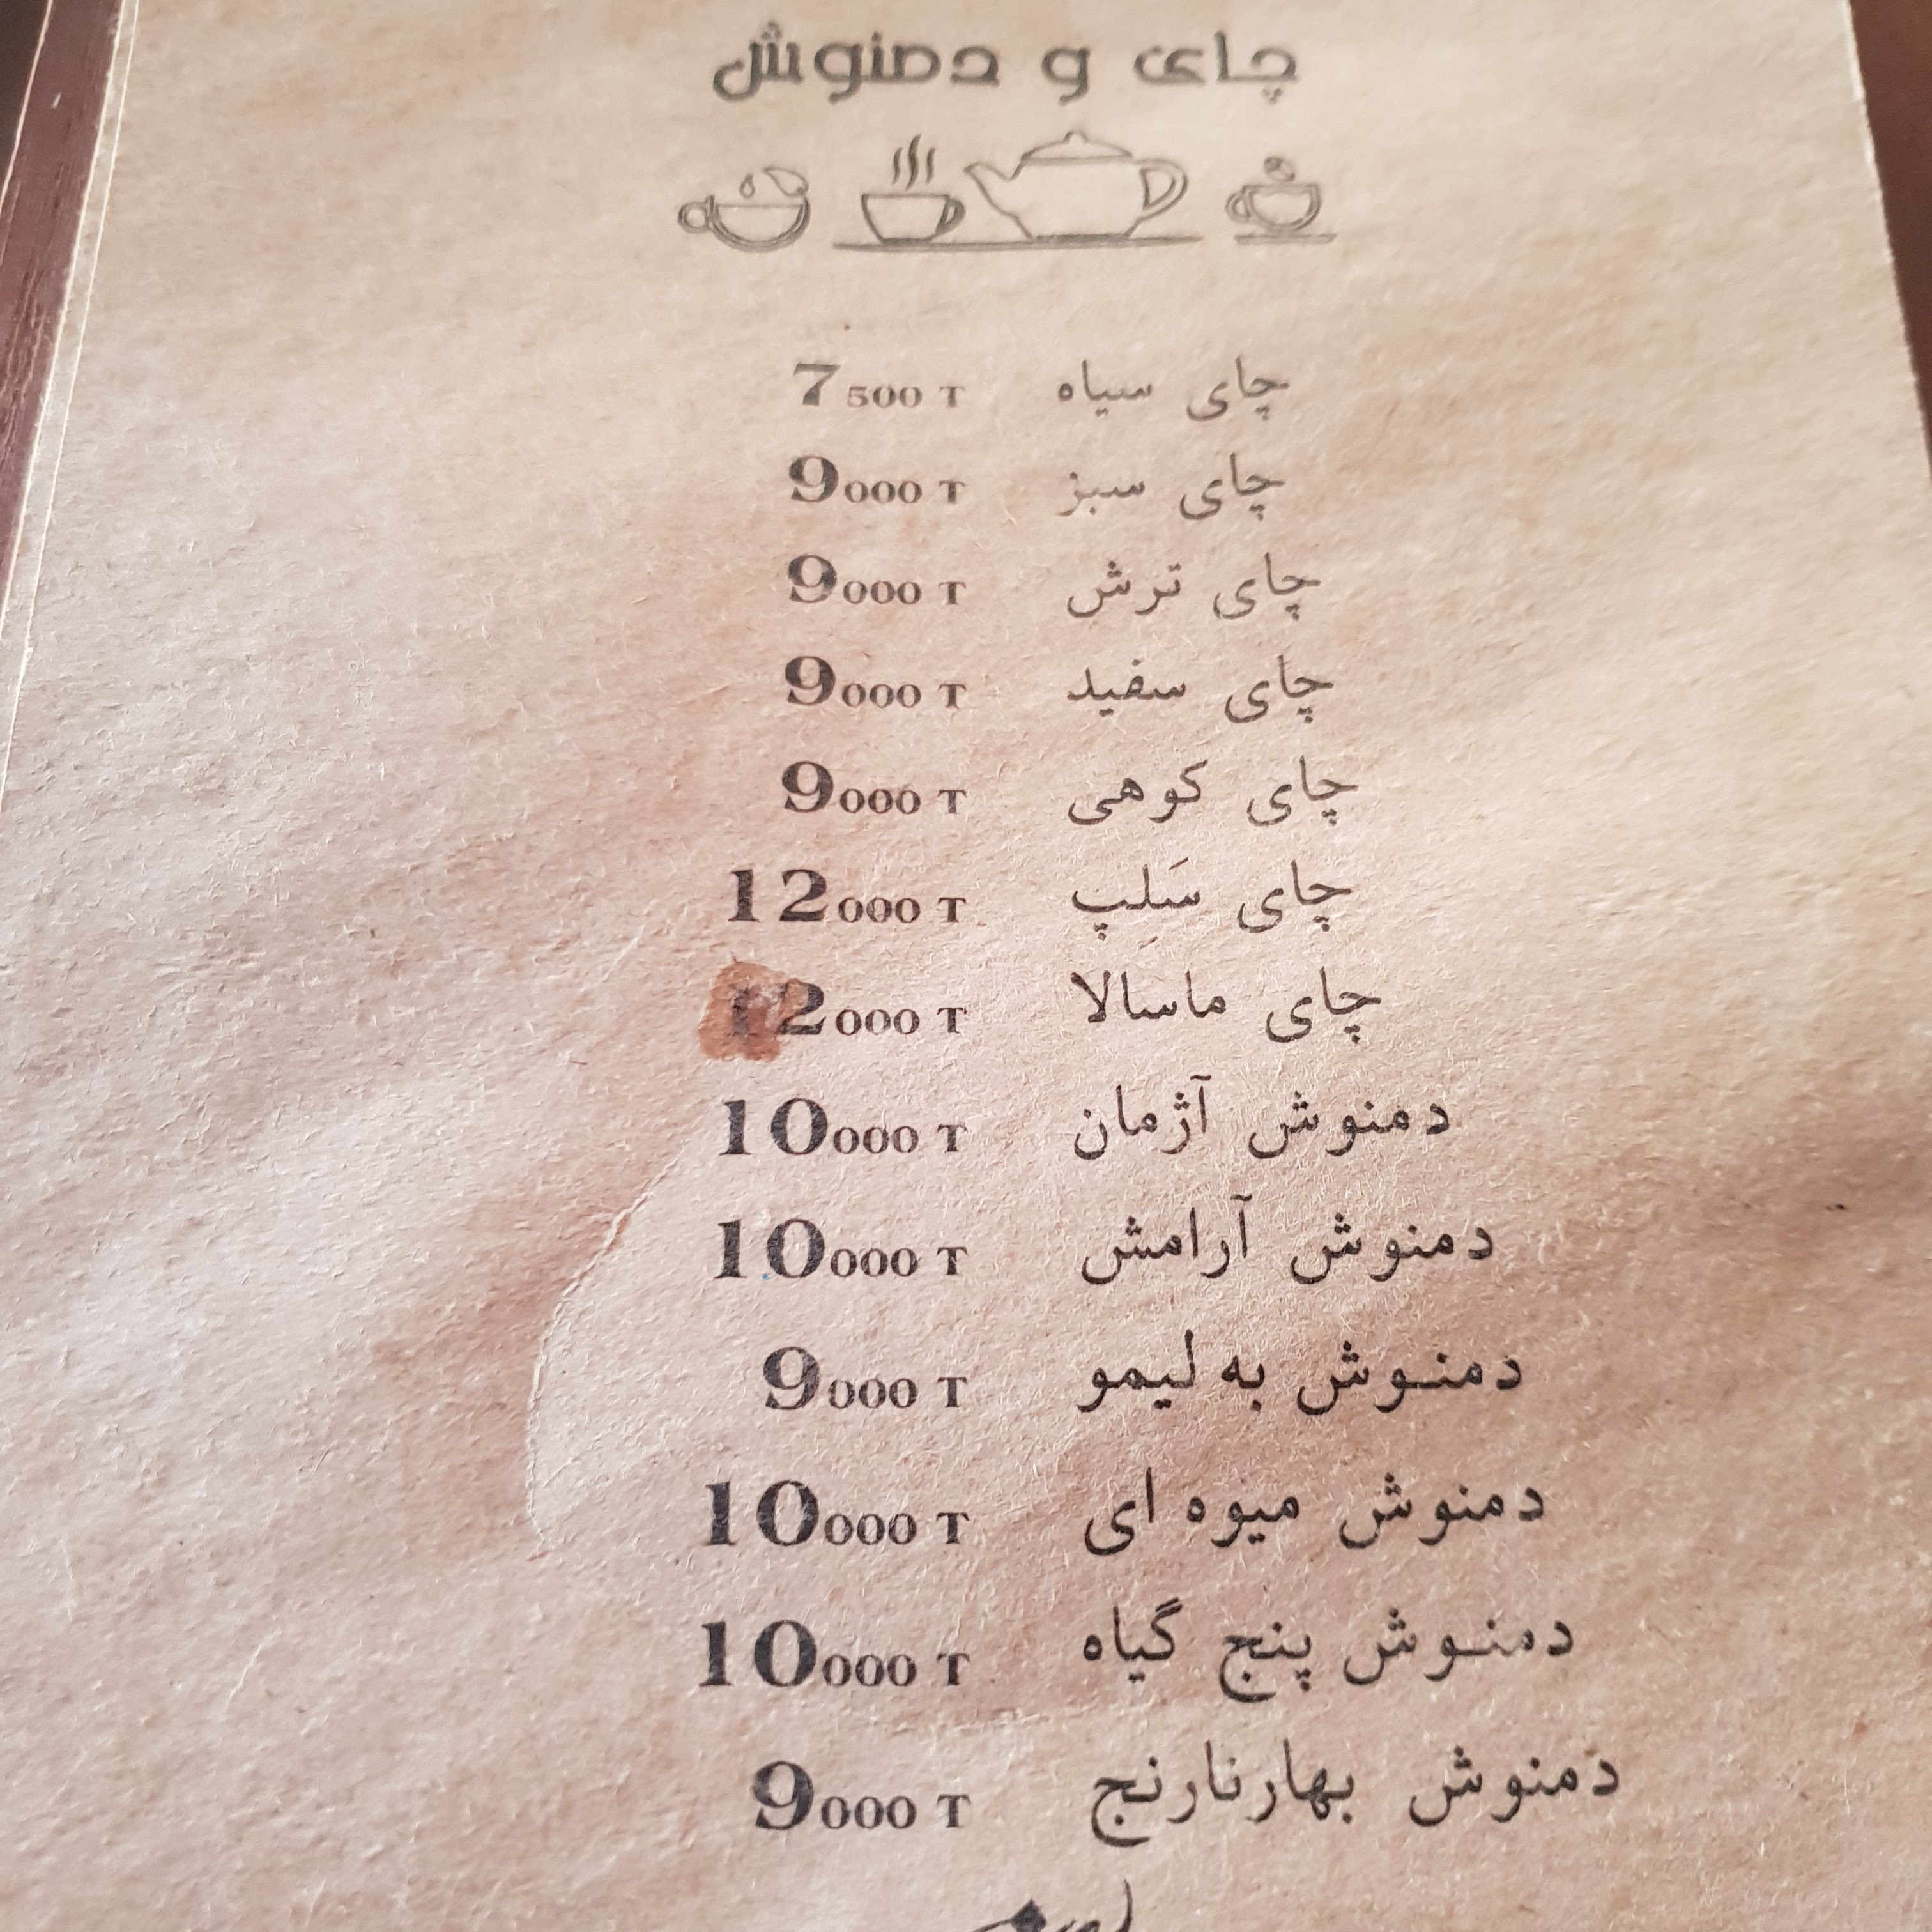 چای و دمنوش
چای سیاه 7500 T
چای سبز 9000 T
چای ترش 9000 T
چای سفید 9000 T
چای کوهی 9000 T
چای سَلِپ 12000 T
چای ماسالا 12000 T
دمنوش آژمان 10000 T
دمنوش آرامش 10000 T
دمنوش به لیمو 9000 T
دمنوش میوه ای 10000 T
دمنوش پنج گیاه 10000 T
دمنوش بهارنارنج 9000 T